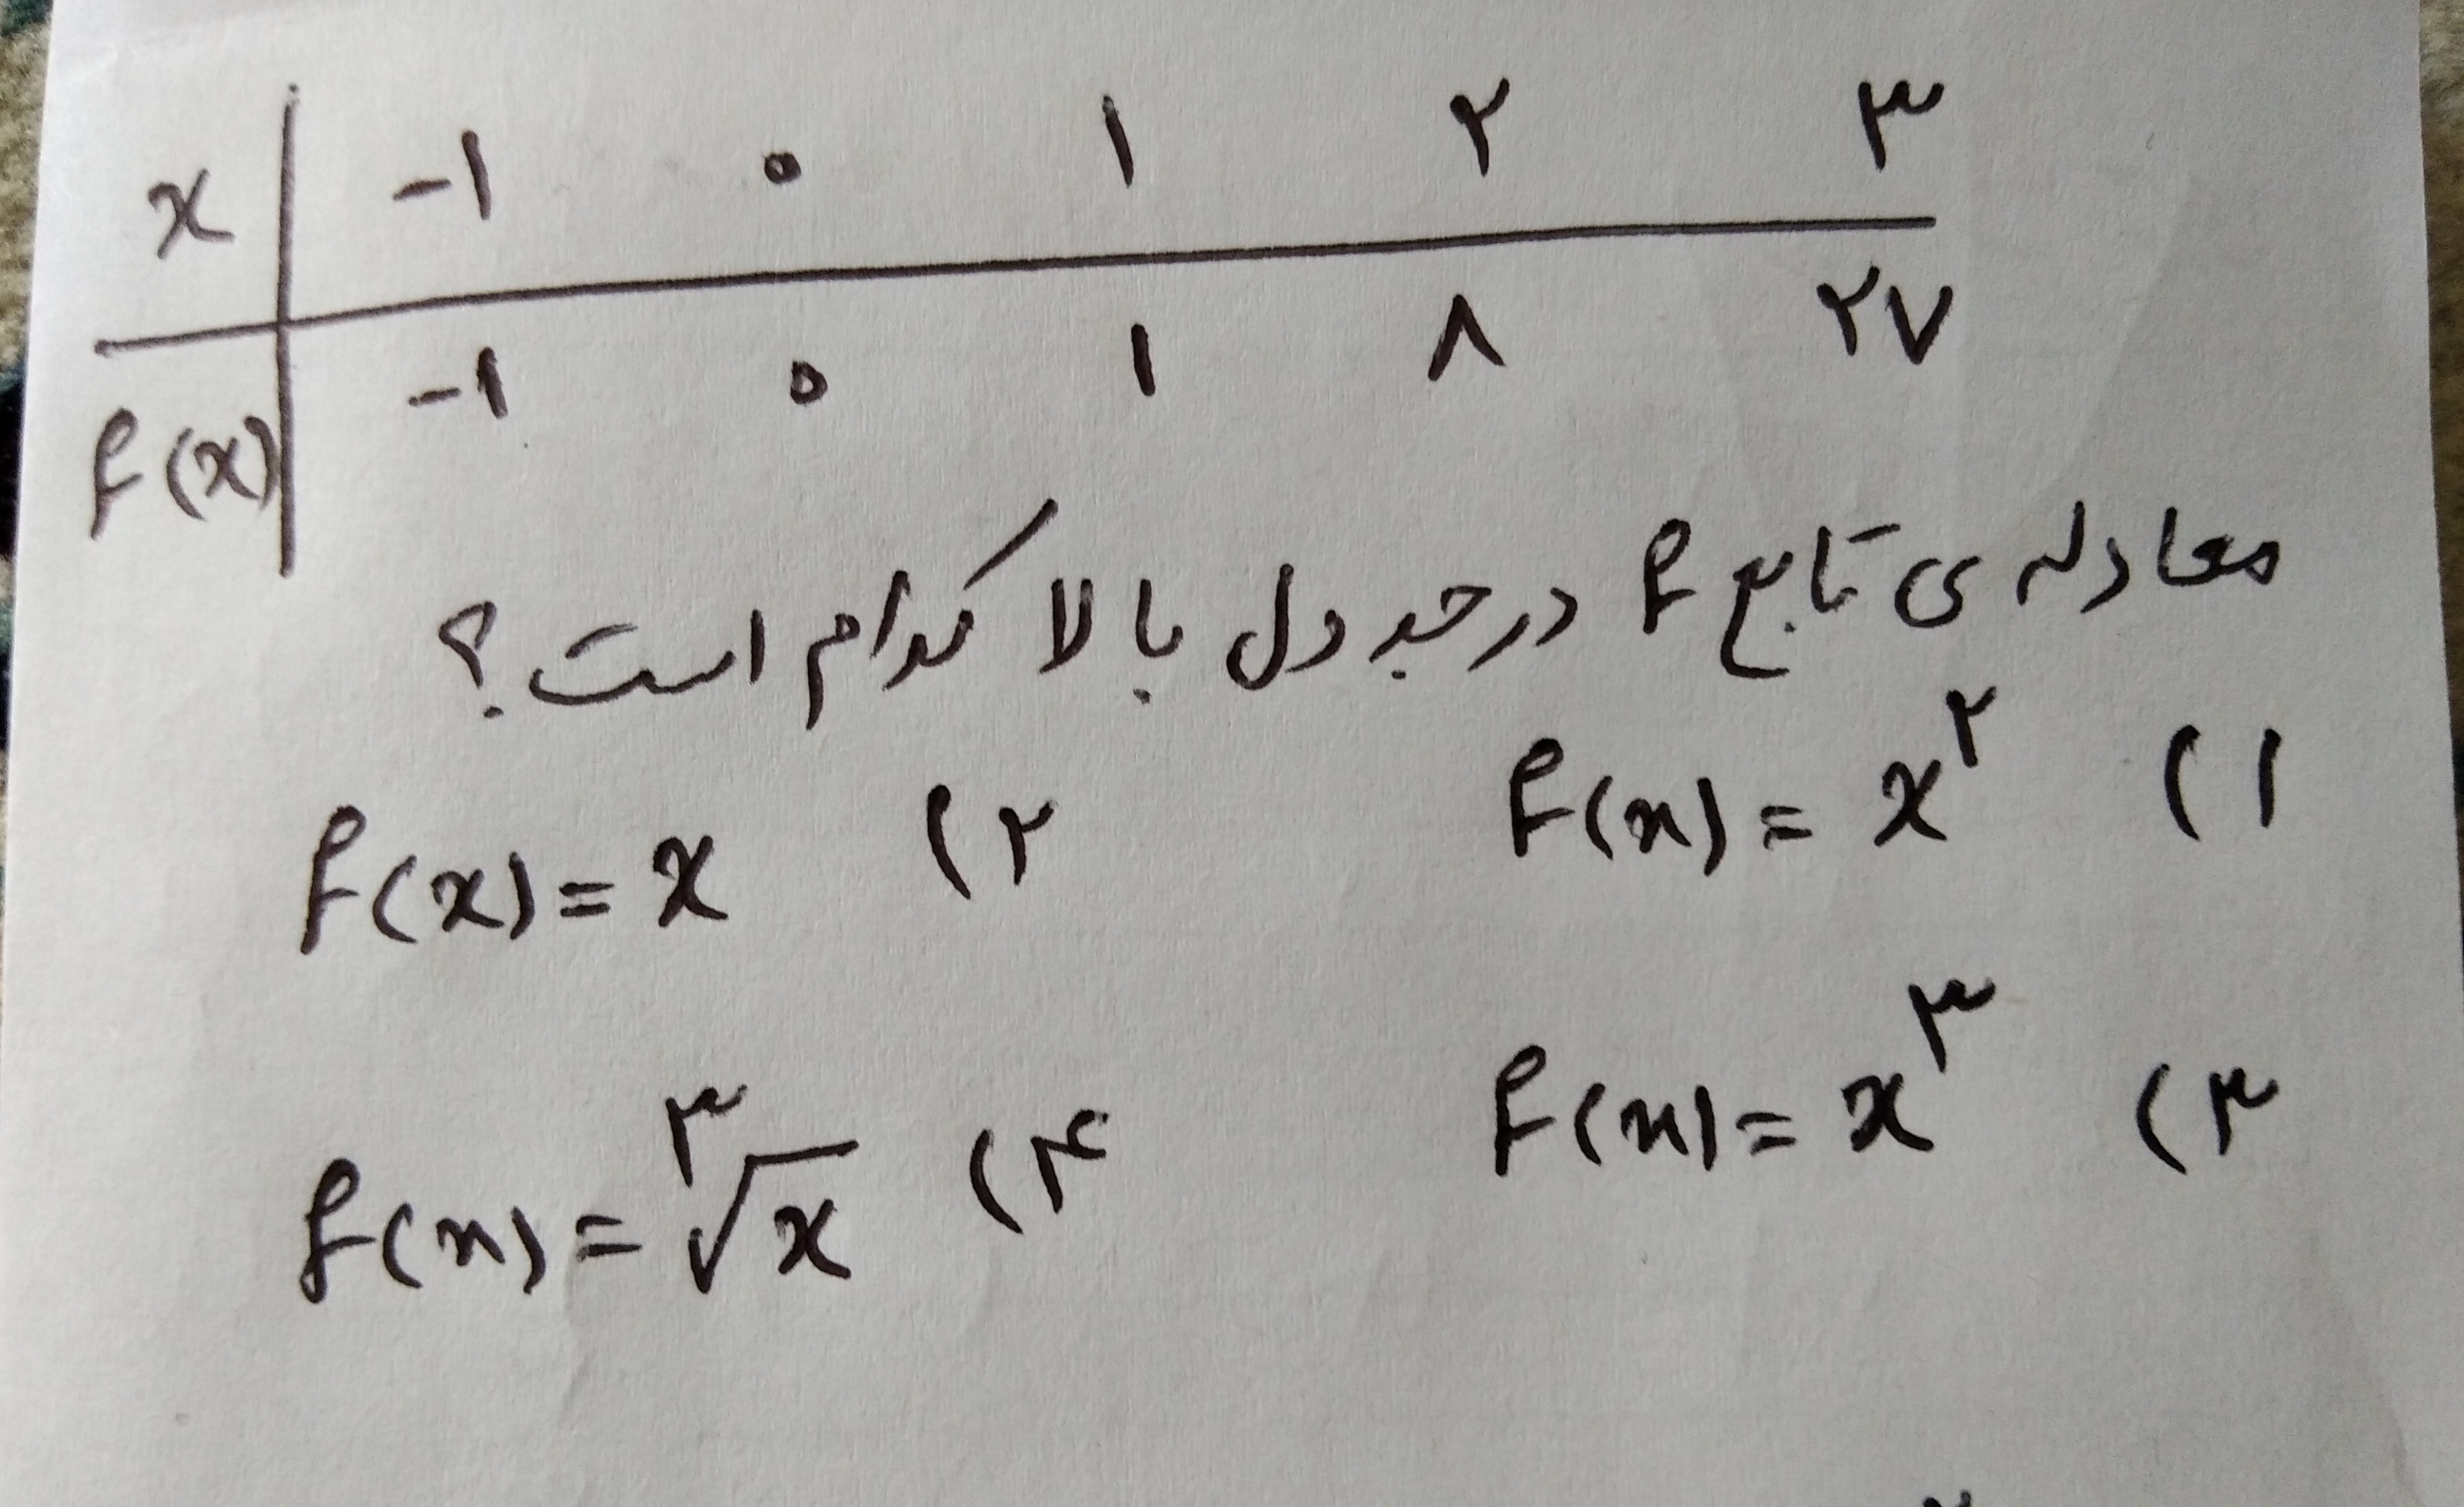 x | -۱ ۰ ۱ ۲ ۳
f(x) | -۱ ۰ ۱ ۸ ۲۷
معادله ی تابع f در جدول بالا کدام است؟
۱) f(x) = x^۲ ۲) f(x) = x
۳) f(x) = x^۳ ۴) f(x) = ∛x